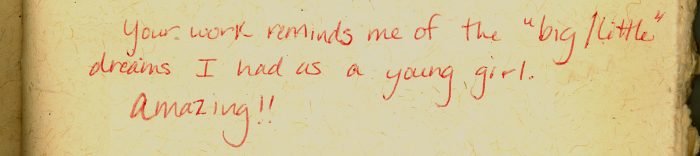 Your work reminds me of the "big/little"
dreams I had as a young girl.
Amazing!!